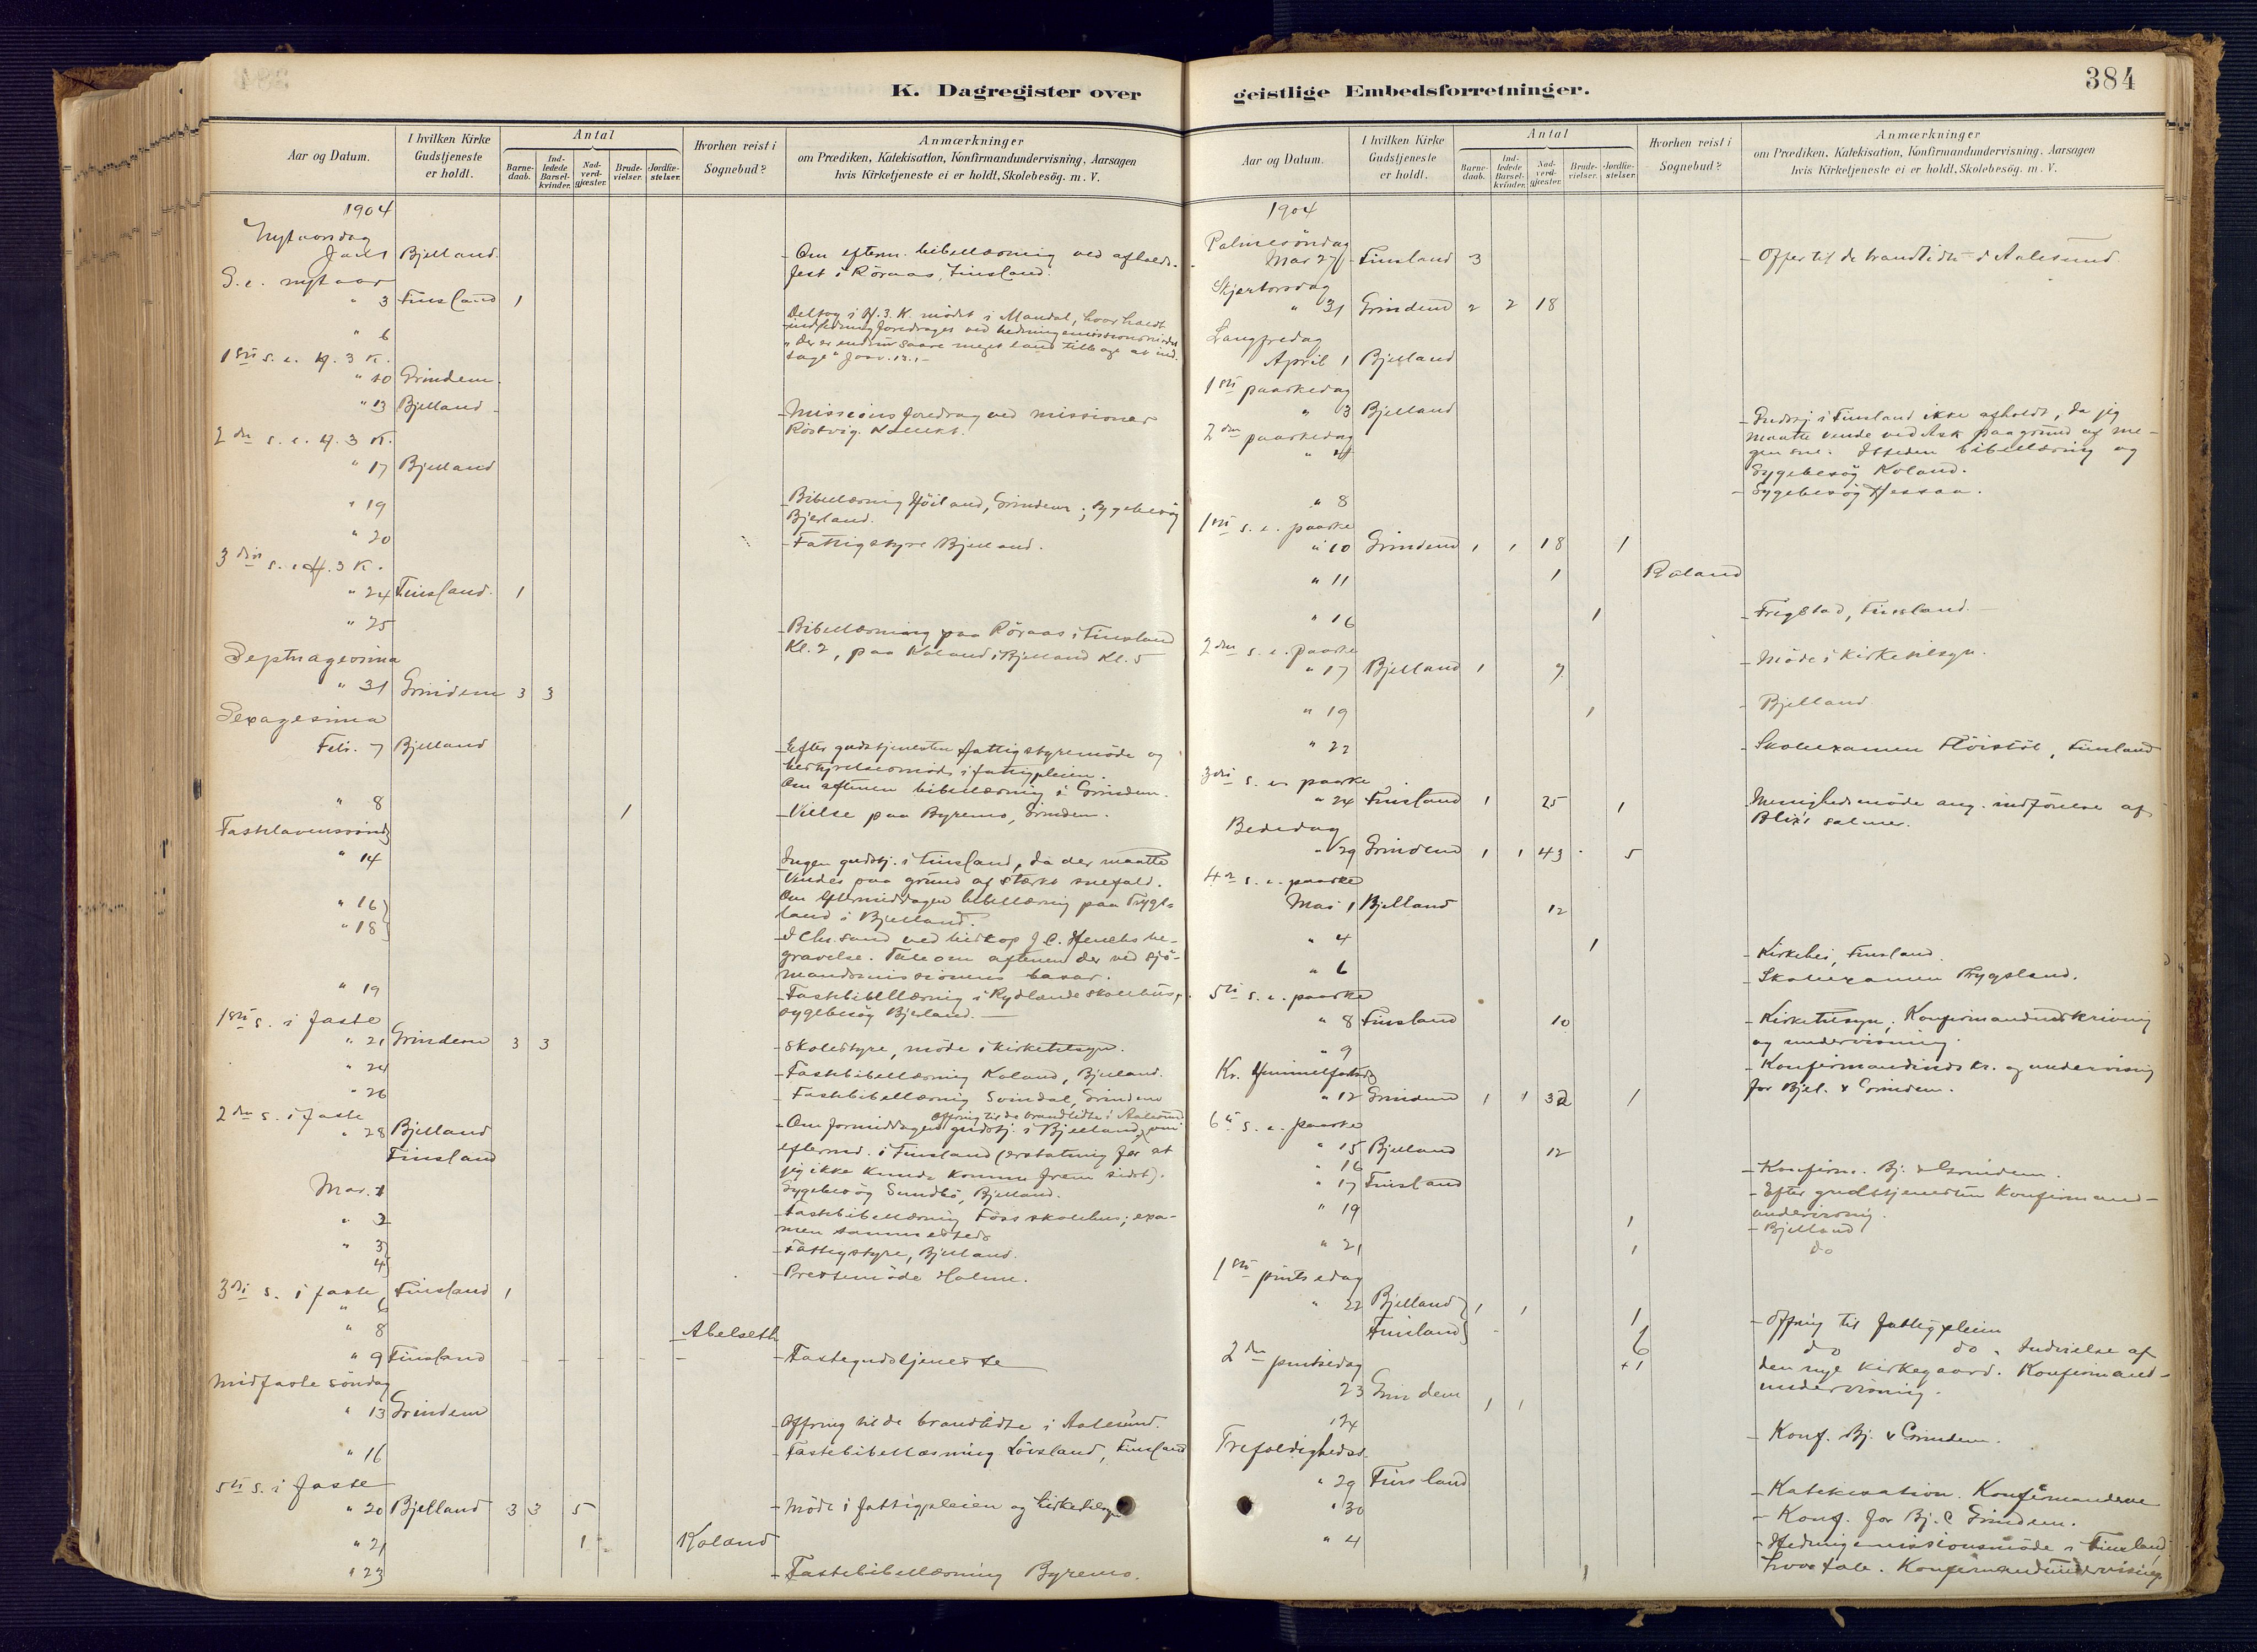 K. Dagregister over
Aar og Datum.
I hvilken Kirke Gudstjeneste er holdt.
Antal
Barne-daab.
Ind-ledede Barsel-kvinder.
Nad-verd-gjæster.
Brude-vielser.
Jordfæ-stelser.
Hvorhen reist i Sognebud?
Anmærkninger
om Prædiken, Katekisation, Konfirmandundervisning, Aarsagen
hvis Kirketjeneste ei er holdt, Skolebesøg. m. V.
1904
Nytaarsdag
Bjelland.
fest i Röraas, Finsland.
S. e. nytaar
" 3 Finsland 1
" 6
Deltog i H. 3. K. mödet i Mandal, hvor holdt
1ste s. e. H. 3 K.
" 10 Grindem.
" 13 Bjelland
Missionsforedrag ved missionær
2den s. e. H. 3 K.
" 17 Bjelland
" 19
Bibellæsning Höiland, Grindem; Sygebesög
Bjelland.
" 20
Fattigstyre Bjelland.
3die s. e. H. 3 K.
" 24 Finsland. 1
" 25
Bibellæsning paa Röraas i Finsland
Kl. 2, paa Koland i Bjelland Kl. 5
Septuagesima
" 31 Grindem 3 3
Sexagesima
Febr. 7 Bjelland
Efter gudstjenesten fattigstyremöde og
bestyrelsesmöde i fattigpleien.
Om aftenen bibellæsning i Grindem.
" 8 1
Vielse paa Byremo, Grindem.
" 14
Ingen gudstj. i Finsland, da der maatte
vendes paa grund af stærkt snefald.
Om eftermiddagen bibellæsning paa Trygs-
land i Bjelland.
" 16
" 18
I Chr.sand ved biskop J. C. Heuchs be-
gravelse. Tale om aftenen der ved sjö-
mandsmissionens basar.
" 19
Fastebibellæsning i Rydlands skolehus,
sygebesög Bjelland.
1ste s. i faste
" 21 Grindem 3 3
Skolestyre, möde i kirketilsyn.
" 24
Fastebibellæsning Koland, Bjelland.
" 26
Fastebibellæsning Svindal, Grindem
2den s. i faste
Ofring til de brandlidte i Aalesund
" 28 Bjelland
Om formiddagen gudstj. i Bjelland, om
Finsland
efterm. i Finsland (erstatning for at
jeg ikke kunde komme frem sidst).
Mar. 1
Sygebesög Sundbö, Bjelland.
" 2
Fastebibellæsning Foss skolehus; exa-
men sammesteds
" 3
Fattigstyre, Bjelland.
4
Prestemöde Holme.
3die s. i faste
" 6 Finsland 1
" 8 Abelseth
" 9 Finsland
Fastegudstjeneste
Midfaste söndag
" 13 Grindem
Ofring til de brandlidte i Aalesund.
" 16
Fastebibellæsning Lövland, Finsland
5te s. i faste
" 20 Bjelland 3 3 5
Möde i fattigpleien og kirketilsyn
" 21 1 Koland
" 23
Fastebibellæsning Byremo.
geistlige Embedsforretninger.
384
Aar og Datum.
I hvilken Kirke Gudstjeneste er holdt.
Antal
Barne-daab.
Ind-ledede Barsel-kvinder.
Nad-verd-gjæster.
Brude-vielser.
Jordfæ-stelser.
Hvorhen reist i Sognebud?
Anmærkninger
om Prædiken, Katekisation, Konfirmandundervisning, Aarsagen
hvis Kirketjeneste ei er holdt, Skolebesøg. m. V.
1904
Palmesöndag
Mar 27 Finsland 3
Offer til de brandlidte i Aalesund.
Skjærtorsdag
" 31 Grindem 2 2 18
Langfredag
April 1 Bjelland
1ste paaskedag
" 3 Bjelland
2den paaskedag
" 4
Gudstj. i Finsland ikke afholdt, da jeg
maatte vende ved Ask paa grund af me-
gen sne. Isteden bibellæsning og
Sygebesög Koland.
" 8
Sygebesög Hessaa.
1ste s. e. paaske
" 10 Grindem 1 1 18 1
" 11 1 Koland
" 16 1
Frigstad, Finsland.
2den s. e. paaske
" 17 Bjelland 1 9
Möde i kirketilsyn.
" 19 1
Bjelland
" 22
Skoleexamen Flöistöl, Finsland
3die s. e. paaske
" 24 Finsland 1 25 1
Menighedsmöde ang. indförelse af
Blix's salmer.
Bededag
" 29 Grindem 1 1 43 5
4de s. e. paaske
Mai 1 Bjelland 12
" 4 1
Kirkebö, Finsland.
" 6
Skoleexamen Trygsland.
5te s. e. paaske
" 8 Finsland 10
Kirketilsyn; Konfirmandindskrivning
og undervisning.
" 9
Konfirmandindskr. og undervisning
for Bjel. & Grindem.
Kr. Himmelfartsdag
" 12 Grindem 1 1 32 1
6te s. e. paaske
" 15 Bjelland 12
" 16
Konfirm. Bj. & Grindem.
" 17 Finsland
Efter gudstjenesten Konfirmand-
undervisning.
" 19 1
Bjelland
" 21 1
do
1ste pintsedag
" 22 Bjelland 1 1 1
Ofring til fattigpleien
Finsland 6
do do. Indvielse af
+1
den nye kirkegaard. Konfirmand-
undervisning.
2den pintsedag
23 Grindem 1 1
" 24
Konf. Bj. & Grindem.
Trefoldighedss.
" 29 Finsland
Katekisation. Konfirmanderne
" 30
Konf. for Bj. & Grindem.
" 4
Hedningemissionsmöde i Finsland,
hvor tale. Konfirmandundervisning.
1